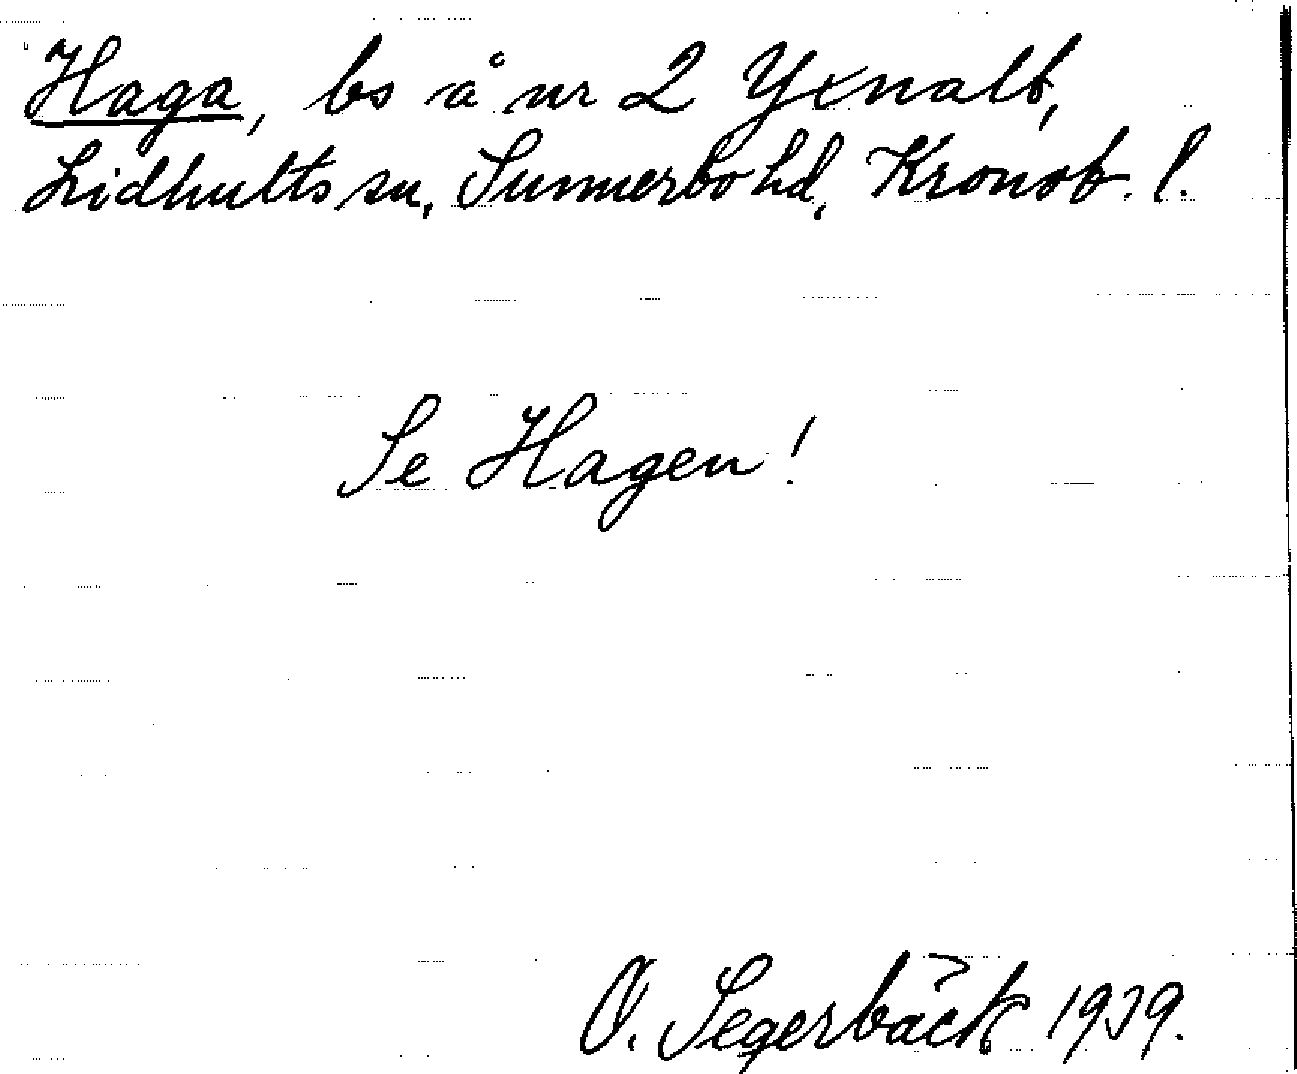 Haga, bs å nr 2 Yxnalt,
Lidhults sn, Sunnerbo hd, Kronob. l.
Se Hagen!
O. Segerbäck 1939.